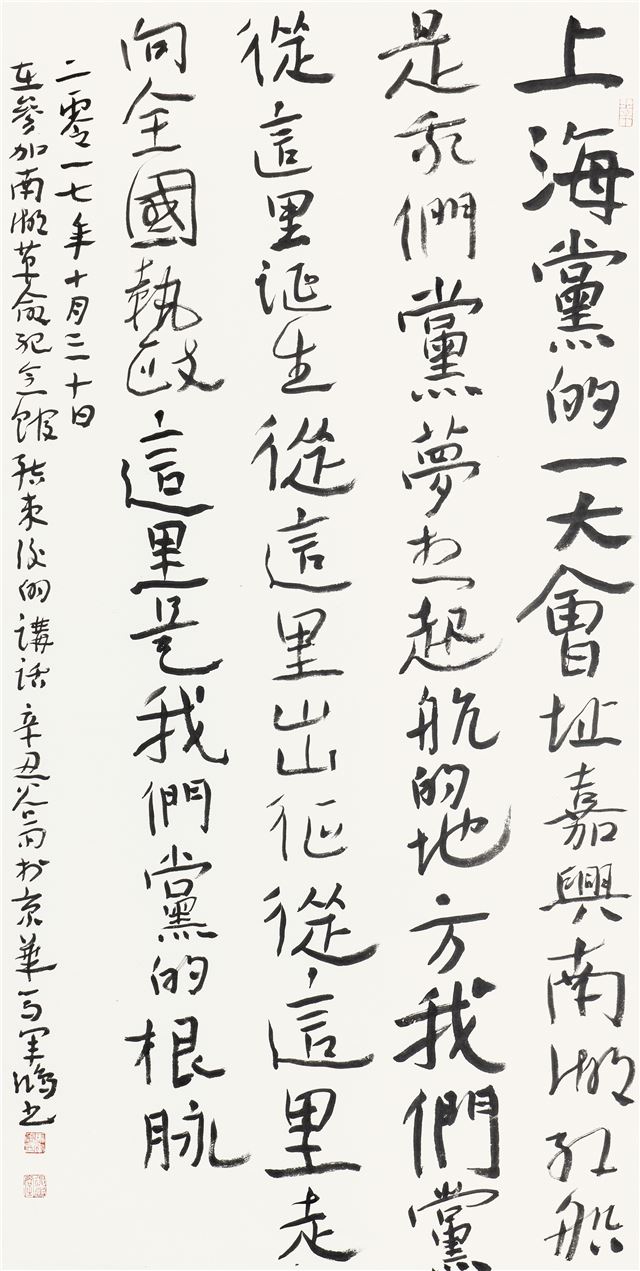 上海黨的一大會址嘉興南湖紅船
是我們黨夢想起航的地方我們黨
從這里誕生從這里出征從這里走
向全國執政這里是我們黨的根脉
二零一七年十月三十一日
在參加南湖革命紀念館結束後的講話辛丑谷雨於京華馬軍鴻書